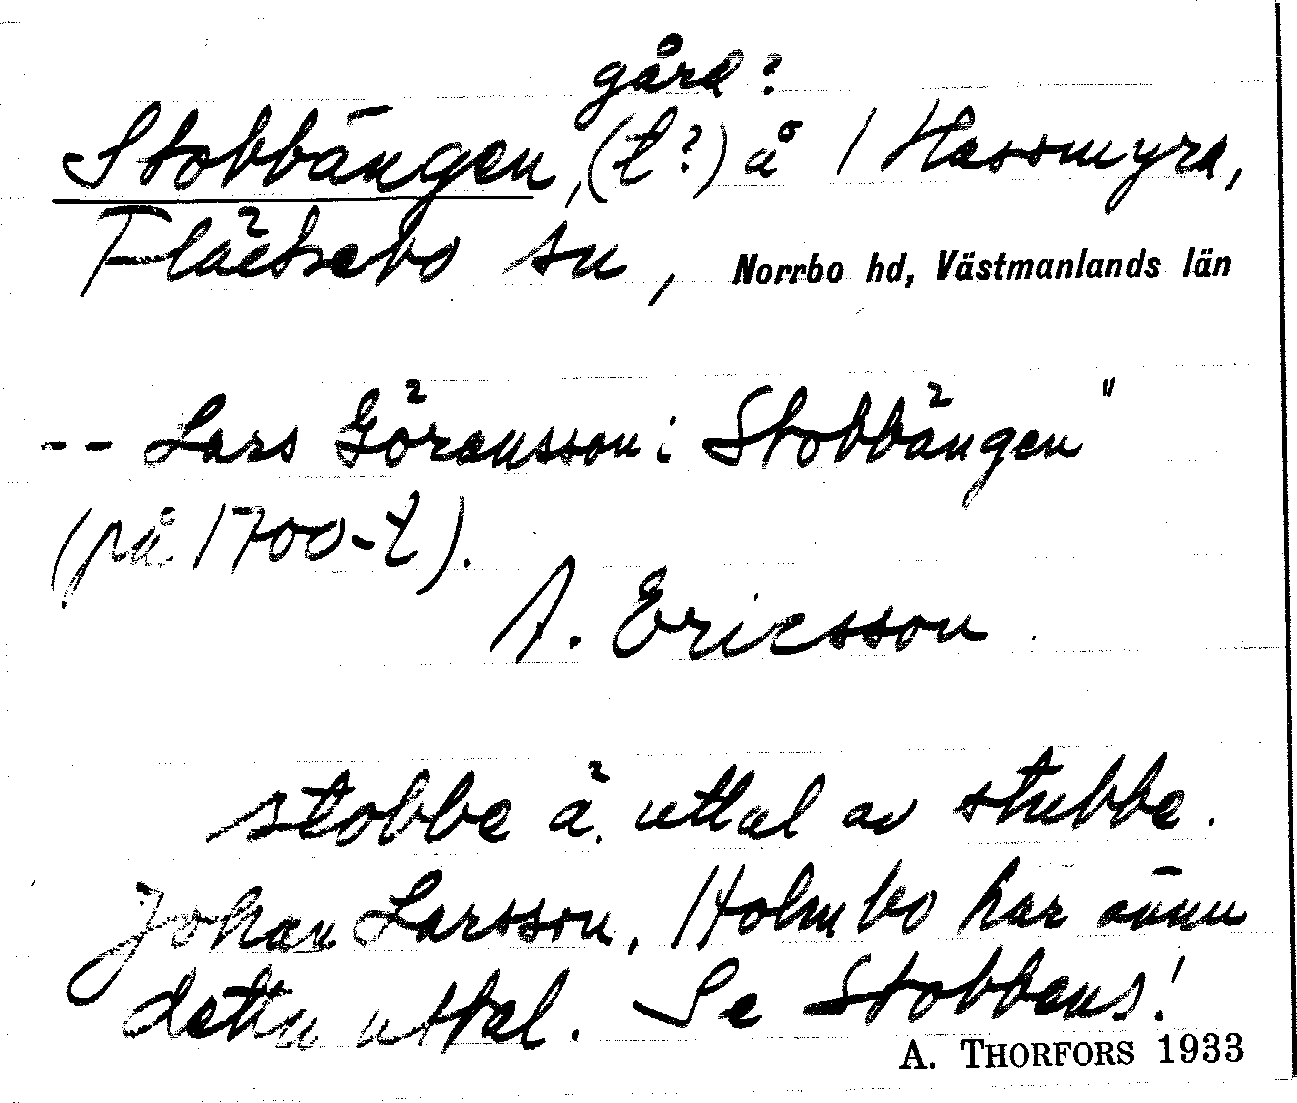 gård?
Stobbängen, (t?) å 1 Hassmyra,
Fläckebo sn, Norrbo hd, Västmanlands län
-- Lars Göransson i Stobbängen"
(på 1700-t).
A. Ericsson
stobbe ä. uttal av stubbe.
Johan Larsson, Holmbo har ännu
detta uttal. Se Stobbens!
A. THORFORS 1933